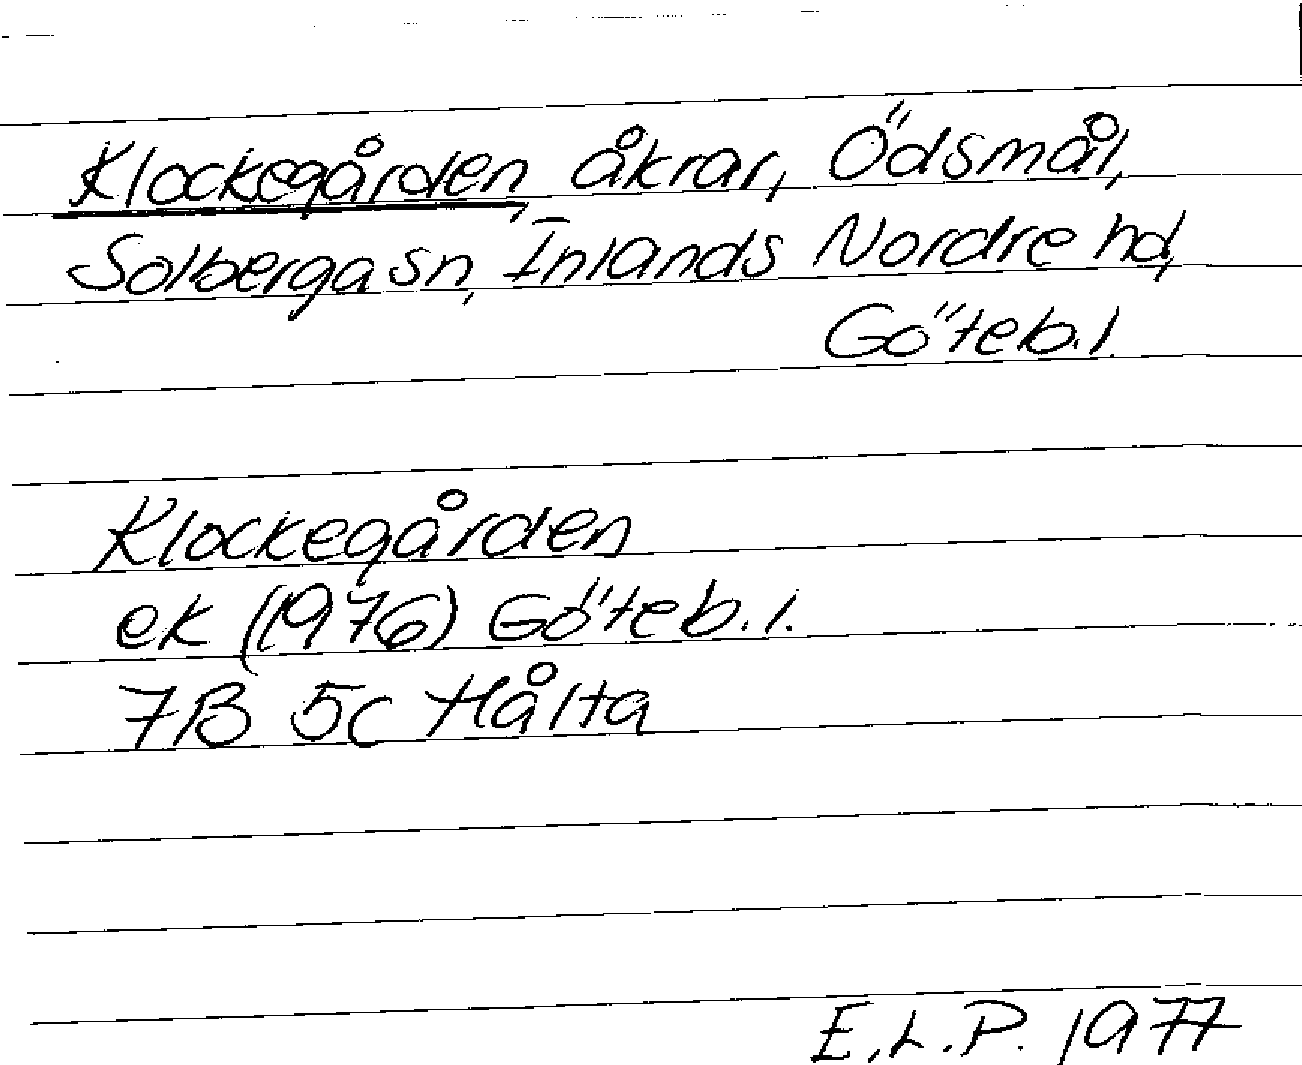 Klockegården, åkrar, Ödsmål,
Solberga sn, Inlands Nordre hd,
Göteb. l.
Klockegården
ek (1976) Göteb. l.
7B 5c Hålta
E.L.P. 1977